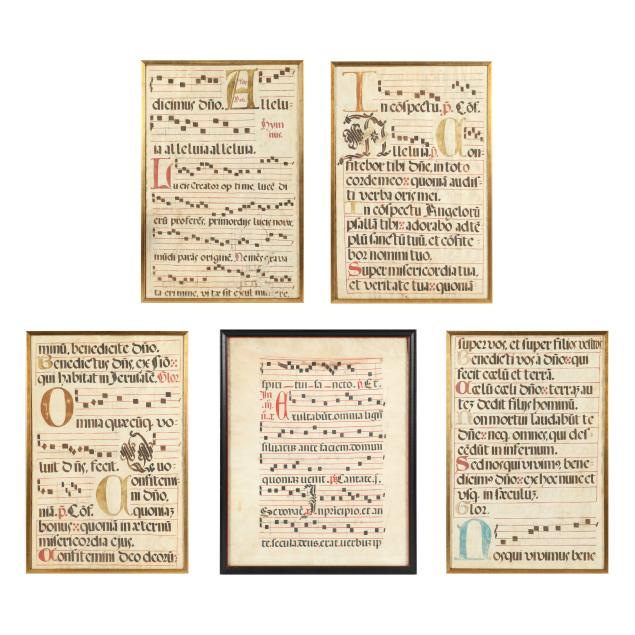 dicimus dño. Allelu-
Hym
nus.
ia alleluia alleluia.
Lucis Creator optime, lucẽ di
erũ proferẽs, primordijs lucis novæ,
mũdi parãs originẽ. Ne mẽs grava
ta crimine, vitæ sit exul munere,
In cõspectu. p̃. Cõf.
Alleluia. p̃. Con-
fitebor tibi dñe, in toto
corde meo: quoniã audis-
ti verba oris mei.
In cõspectu Angelorũ
psallã tibi: adorabo ad tẽ
plũ sanctũ tuũ, et cõfite-
bor nomini tuo.
Super misericordia tua,
et veritate tua: quoniã
minũ, benedicite dño.
Benedictus dñs, ex Siõ:
qui habitat in Jerusalẽ. Glor.
Omnia quæcũq. vo-
luit dñs, fecit. Quo-
Confitemi-
ni dño,
niã. p̃. Cõf. quoniaz
bonus: quoniã in æternũ
misericordia ejus.
Confitemini deo deorũ:
spiri tu sancto. p̃. Et.
Exultabũt. omnia lignꝰ
silvarus ante faciem domini
quoniaz venit. p̃. Cantate.
Es rovaẽ. In pricipio. et an
te. secula deus. erat. verbus ip
super vos, et super filios vestros.
Benedicti vos à dño: qui
fecit cœlũ et terrã.
Cœlũ cœli dño: terraz au-
tez dedit filijs hominũ.
Non mortui laudabũt te
dñe: neq. omnes, qui des-
cẽdũt in infernum.
Sed nos qui vivimus, bene-
dicimꝰ dño: ex hoc nunc et
usq. in sæculuz.
Glor.
Nos qui vivimus bene